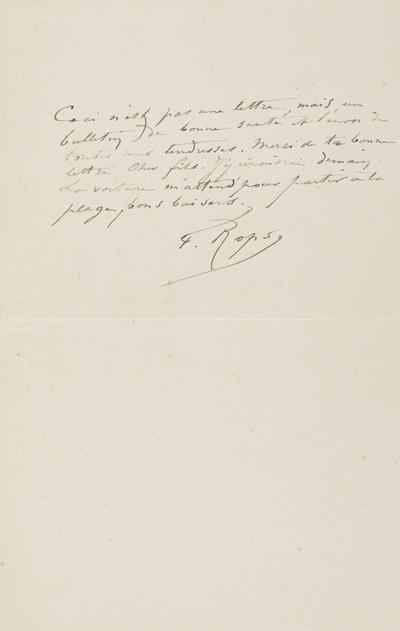 Ceci n'est pas une lettre, mais, un
bulletin de bonne santé et l'envoi de
toutes mes tendresses. Merci de ta bonne
lettre cher fils. J'y répondrai demain.
La voiture m'attend pour partir à la
plage, bons baisers.
F. Rops